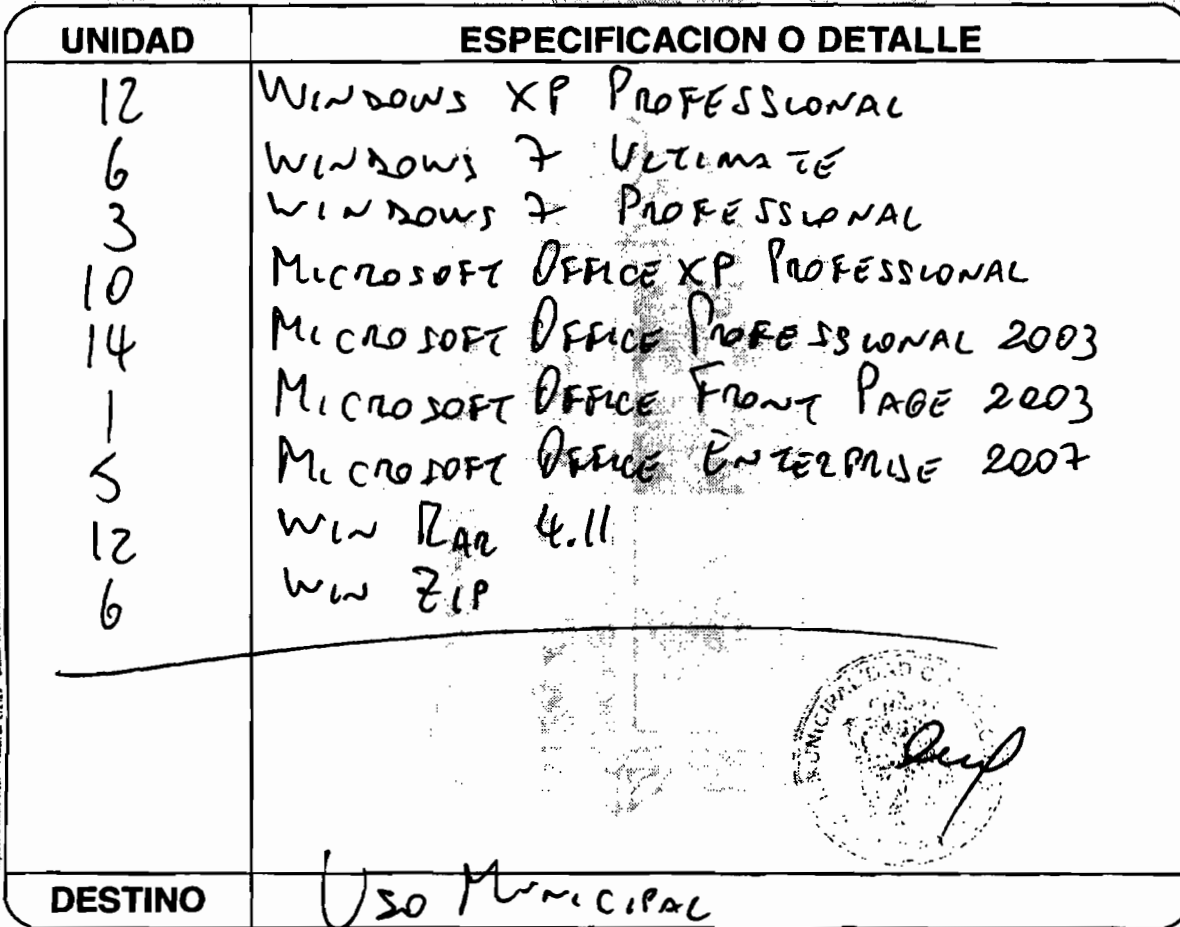 UNIDAD ESPECIFICACION O DETALLE
12 WINDOWS XP PROFESSIONAL
6 WINDOWS 7 ULTIMATE
3 WINDOWS 7 PROFESSIONAL
10 MICROSOFT OFFICE XP PROFESSIONAL
14 MICROSOFT OFFICE PROFESSIONAL 2003
1 MICROSOFT OFFICE FRONT PAGE 2003
5 MICROSOFT OFFICE ENTERPRISE 2007
12 WIN RAR 4.11
6 WIN ZIP
DESTINO USO MUNICIPAL